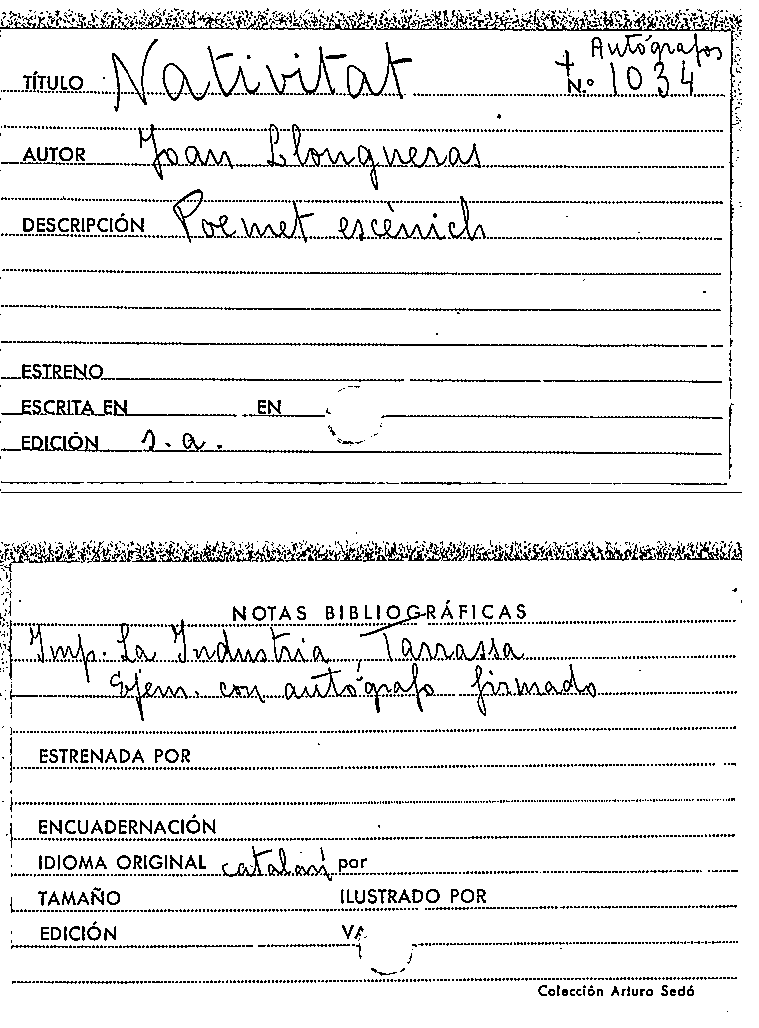 Autógrafos
TÍTULO Nativitat N.º 1034
AUTOR Joan Llongueras
DESCRIPCIÓN Poemet escènich
ESTRENO
ESCRITA EN EN
EDICIÓN s.a.
NOTAS BIBLIOGRÁFICAS
Imp. La Industria, Tarrassa
Ejem. con autógrafo firmado
ESTRENADA POR
ENCUADERNACIÓN
IDIOMA ORIGINAL catalán por
TAMAÑO ILUSTRADO POR
EDICIÓN
Colección Arturo Sedó